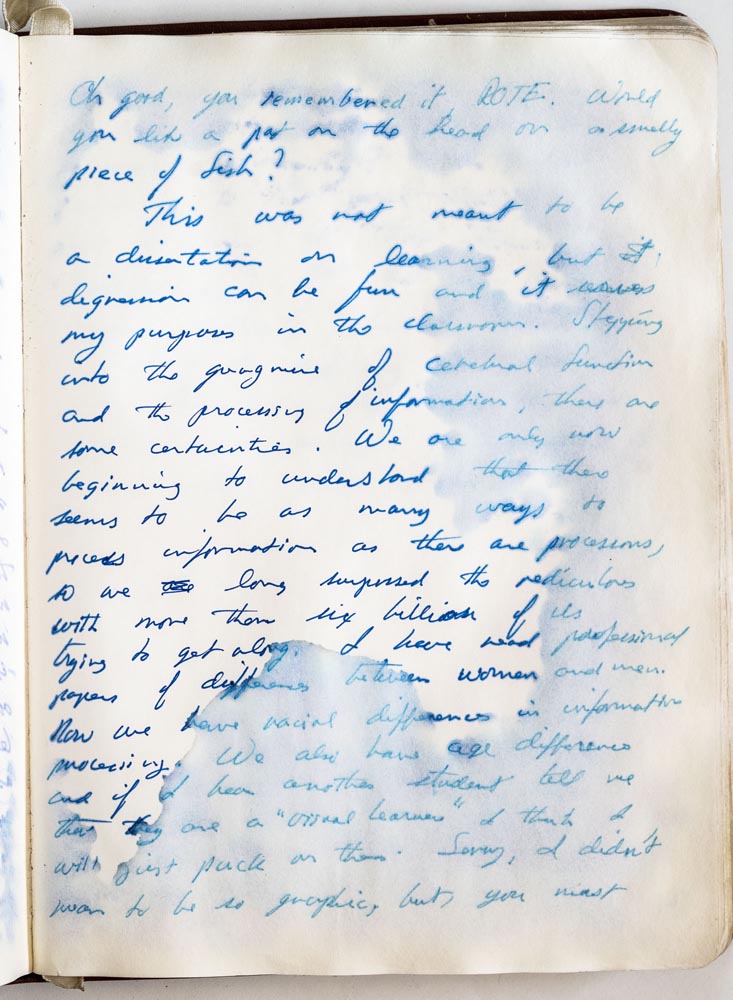 Oh good, you remembered it, ROTE. Would
you like a pat on the head or a smelly
piece of fish?
This was not meant to be
a dissertation on learning, but
digression can be fun and it serves
my purposes in the classroom. Stepping
into the quagmire of cerebral function
and the processing of information, there are
some certainties. We are only now
beginning to understand that there
seems to be as many ways to
process information as there are processors,
so we long surpassed the rediculous
with more than six billion of us
trying to get along. I have read professional
papers of differences between women and men.
Now we have racial differences in information
processing. We also have age difference
and if I hear another student tell me
that they are a "visual learner" I think I
will just puck on them. Sorry, I didn't
mean to be so graphic, but you must